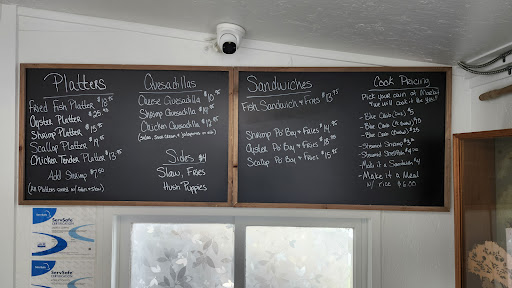 Platters
Fried Fish Platter $10.95
Oyster Platter $25.95
Shrimp Platter $15.95
Scallop Platter $19.95
Chicken Tender Platter $13.95
Add Shrimp $7.50
(All Platters served w/ fries + slaw)
Quesadillas
Cheese Quesadilla $10.95
Shrimp Quesadilla $14.95
Chicken Quesadilla $13.95
(salsa, sour cream + jalapenos on side)
Sides $4
Slaw, Fries
Hush Puppies
Sandwiches
Fish Sandwich + Fries $13.95
Shrimp Po Boy + Fries $14.95
Oyster Po Boy + Fries $18.95
Scallop Po Boy + Fries $15.95
Cook Pricing
Pick your own at Market
"we will cook it for you"
- Blue Crab $5
- Blue Crab
- Blue Crab
- Steamed Shrimp
- Steamed
- Make it a Sandwich $4
- Make it a Meal
w/ rice $6.00
ServSafe
ServSafe